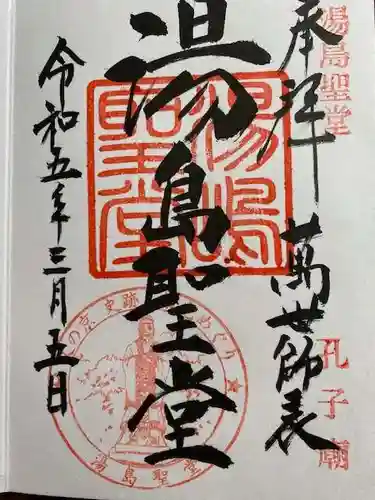 湯島聖堂
奉拝
萬世師表
孔子廟
湯島聖堂
湯島聖堂
令和五年三月五日
の京史跡めぐり
湯島聖堂